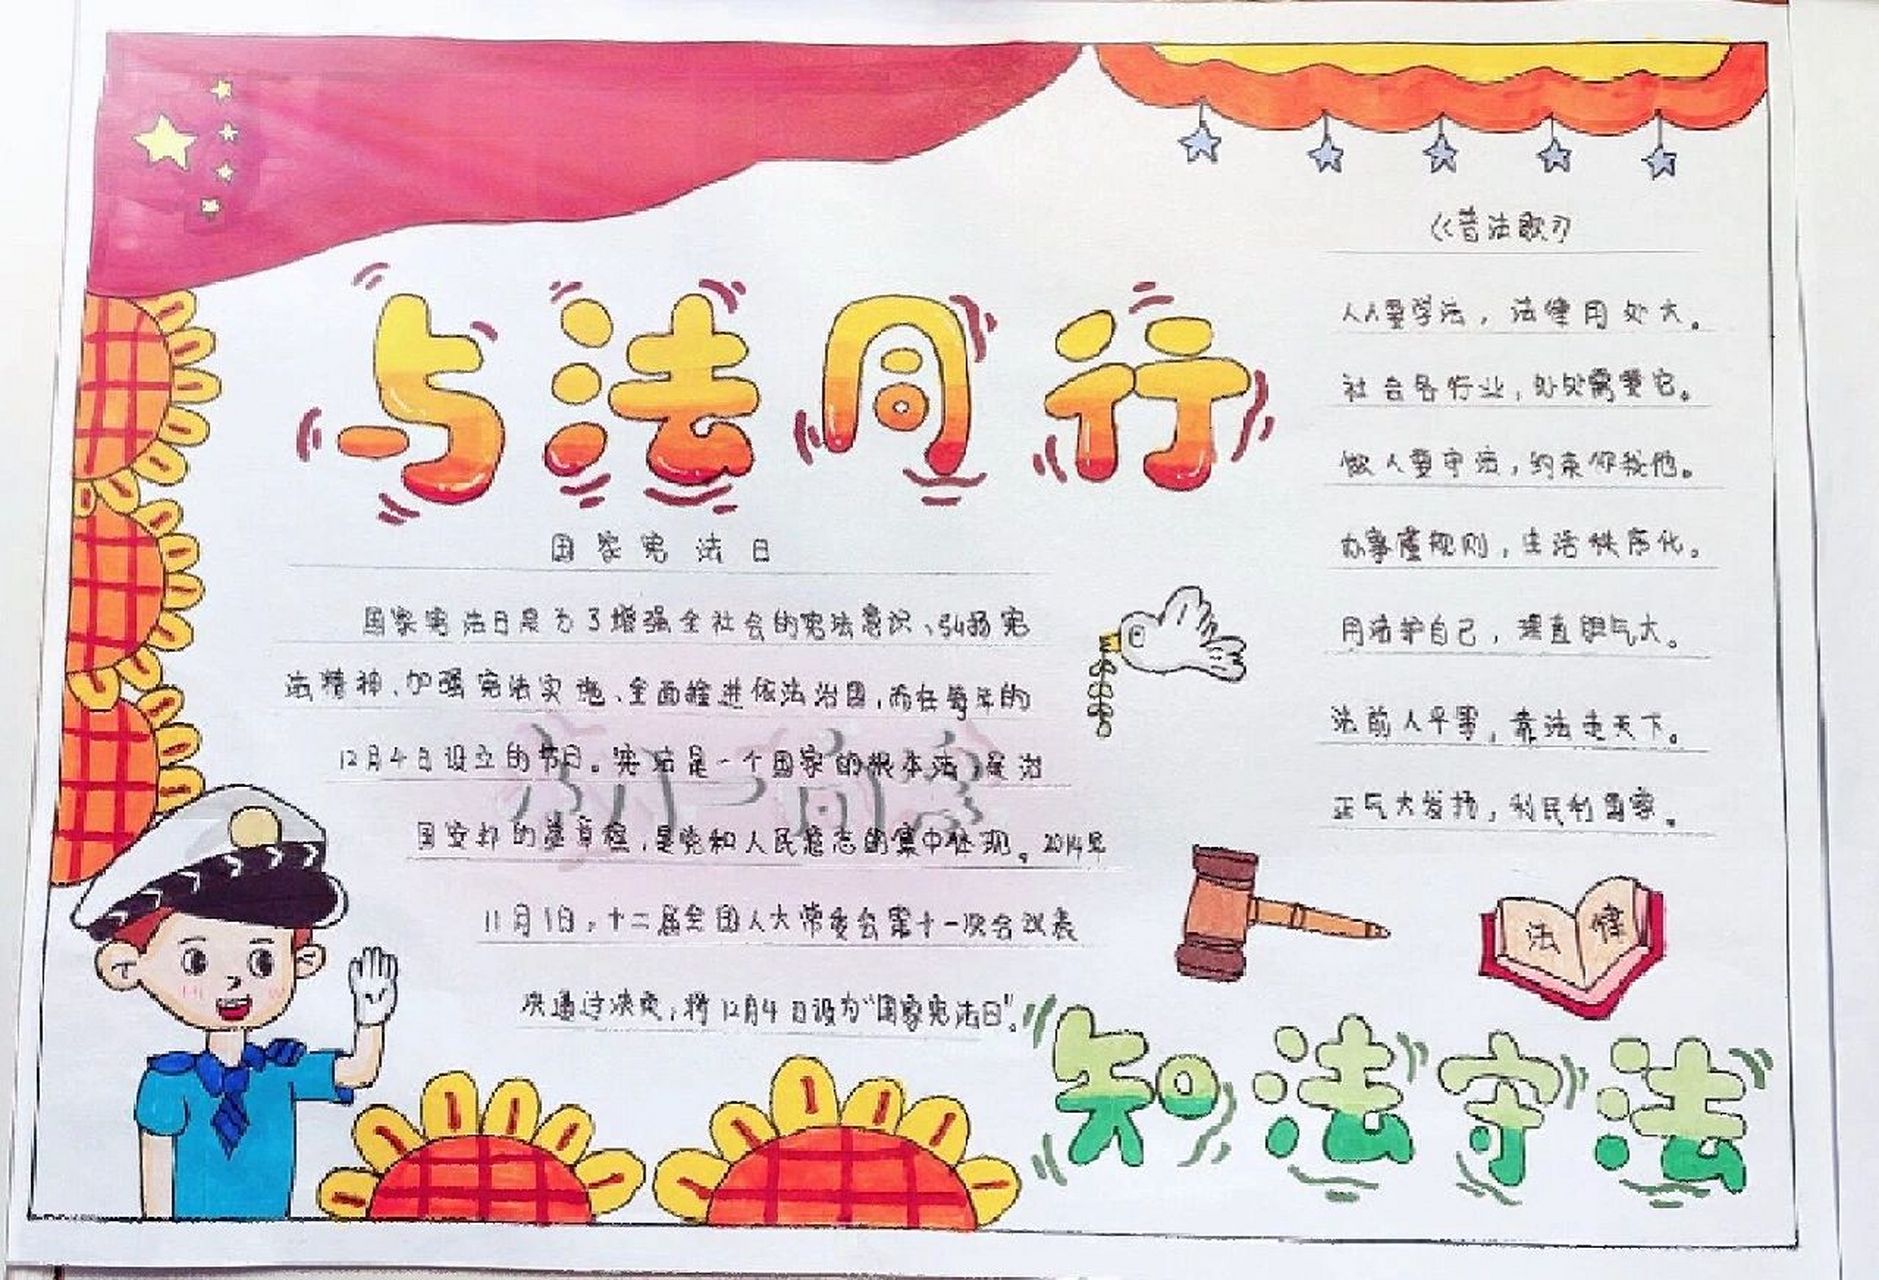 与法同行
国家宪法日
国家宪法日是为了增强全社会的宪法意识、弘扬宪
法精神、加强宪法实施、全面推进依法治国,而在每年的
12月4日设立的节日。宪法是一个国家的根本法,是治
国安邦的总章程,是党和人民意志的集中体现。2014年
11月1日,十二届全国人大常委会第十一次会议表
决通过决定,将12月4日设为“国家宪法日”。
《普法歌》
人人要学法,法律用处大。
社会各行业,处处需要它。
做人要守法,约束你我他。
办事懂规则,生活秩序化。
用法护自己,理直胆气大。
法前人平等,靠法走天下。
正气大发扬,利民利国家。
法律
知法守法